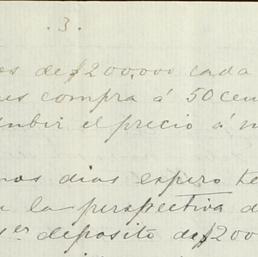 . 3 .
es de $200,000 cada
compra á 50 cen
subir el precio á m
nos dias espero te
la perspectiva d
er deposito de $200